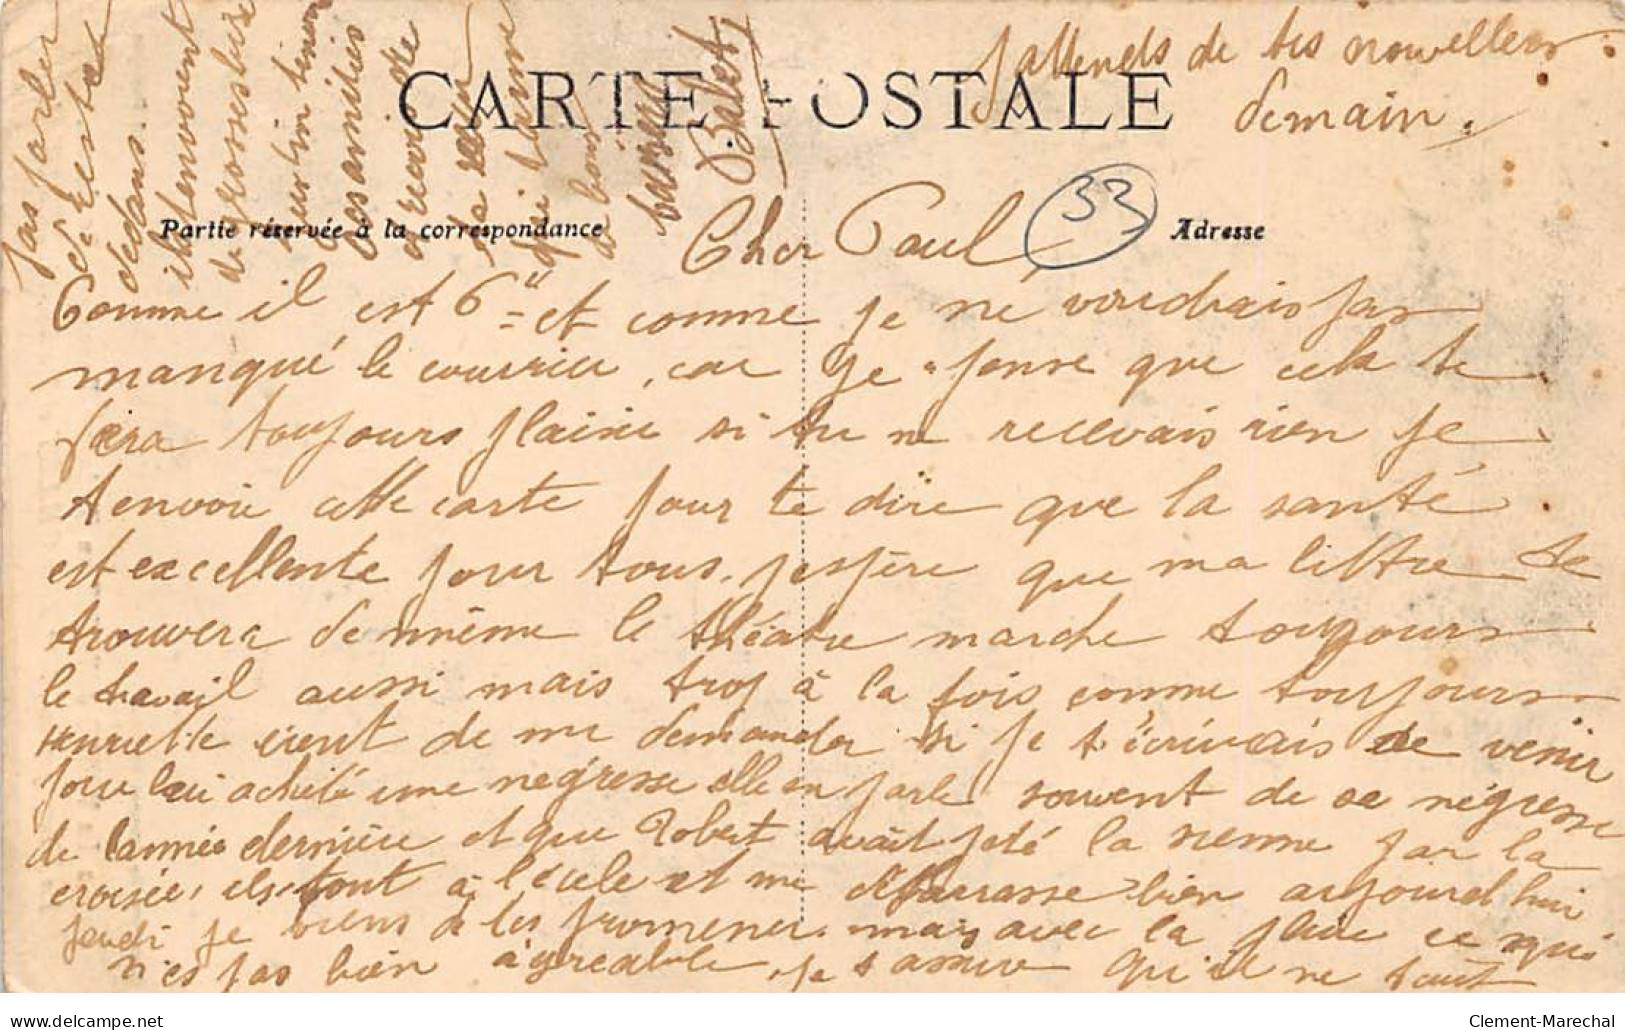 CARTE POSTALE
Partie réservée à la correspondance
Adresse
33
Cher Paul
Comme il est 6" et comme je ne voudrais pas
manqué le courrier, car je pense que cela te
fera toujours plaisir si tu ne recevais rien je
t envoie cette carte pour te dire que la santé
est excellente pour tous. j'espère que ma lettre te
trouvera de même le théatre marche toujours
le travail aussi mais trop à la fois comme toujours
Henriette vient de me demander si je t'écrivais de venir
pour lui acheté une négresse elle en parle souvent de sa négresse
de l'année dernière et que Robert avait jeté la sienne par la
croisée, ils sont à l'école et me débarrasse bien aujourd hui
jeudi je viens de les promener. mais avec la pluie ce qui
n'es pas bien agréable, je t assure qu'il ne faut
pas parler
de rester
dedans.
ils t'envoient
de grosses bises
leur tin tinson
les amitiés
et reçois de
ta
qui t'aime
de bons
baiseurs
P. Balet
J'attends de tes nouvelles
demain.
Clement-Marechal